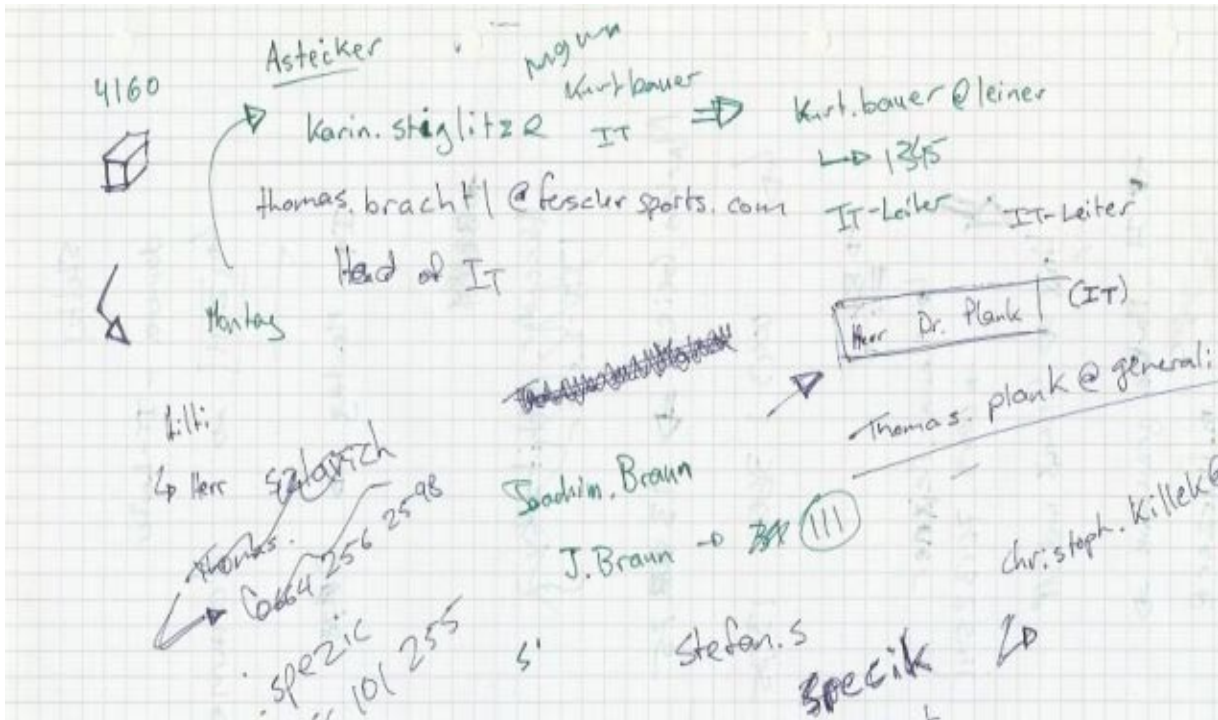 4160
Astecker
Kurt bauer
IT
Karin.
Kurt.bauer@leiner
thomas.brachtl@ sports.com
IT-Leiter
IT-Leiter
Head of IT
Montag
Herr Dr. Plank (IT)
Thomas.plank@generali
Herr
Thomas.
0664 256 2598
Joachim.Braun
J.Braun 111
Christoph.Killek@
spezic
101 255
Stefan.s
specik